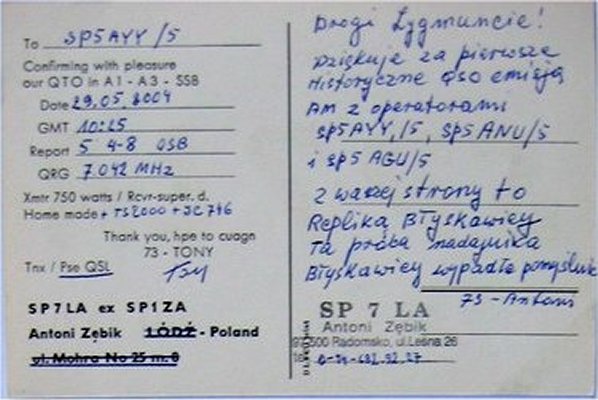 To SP5AYY/5
Confirming with pleasure
our QTO in A1 - A3 - SSB
Date 29.05.2004
GMT 10:25
Report 5 4-8 QSB
QRG 7042 MHz
Xmtr 750 watts / Rcvr-super. d.
Home made + TS2000 + IC746
Thank you, hpe to cuagn
73 - TONY
Tnx / Pse QSL Tony
SP7LA ex SP1ZA
Antoni Zębik ŁÓDŹ - Poland
ul. Mohra No 25 m. 8
Drogi Zygmuncie!
Dziękuję za pierwsze
Historyczne QSO emisją
AM z operatorami
SP5AYY/5, SP5ANU/5
i SP5AGU/5
z waszej strony to
Replika Błyskawicy
Ta próba nadajnika
Błyskawicy wypadła pomyślnie
73 - Antoni
SP 7 LA
Antoni Zębik
97-500 Radomsko, ul. Leśna 26